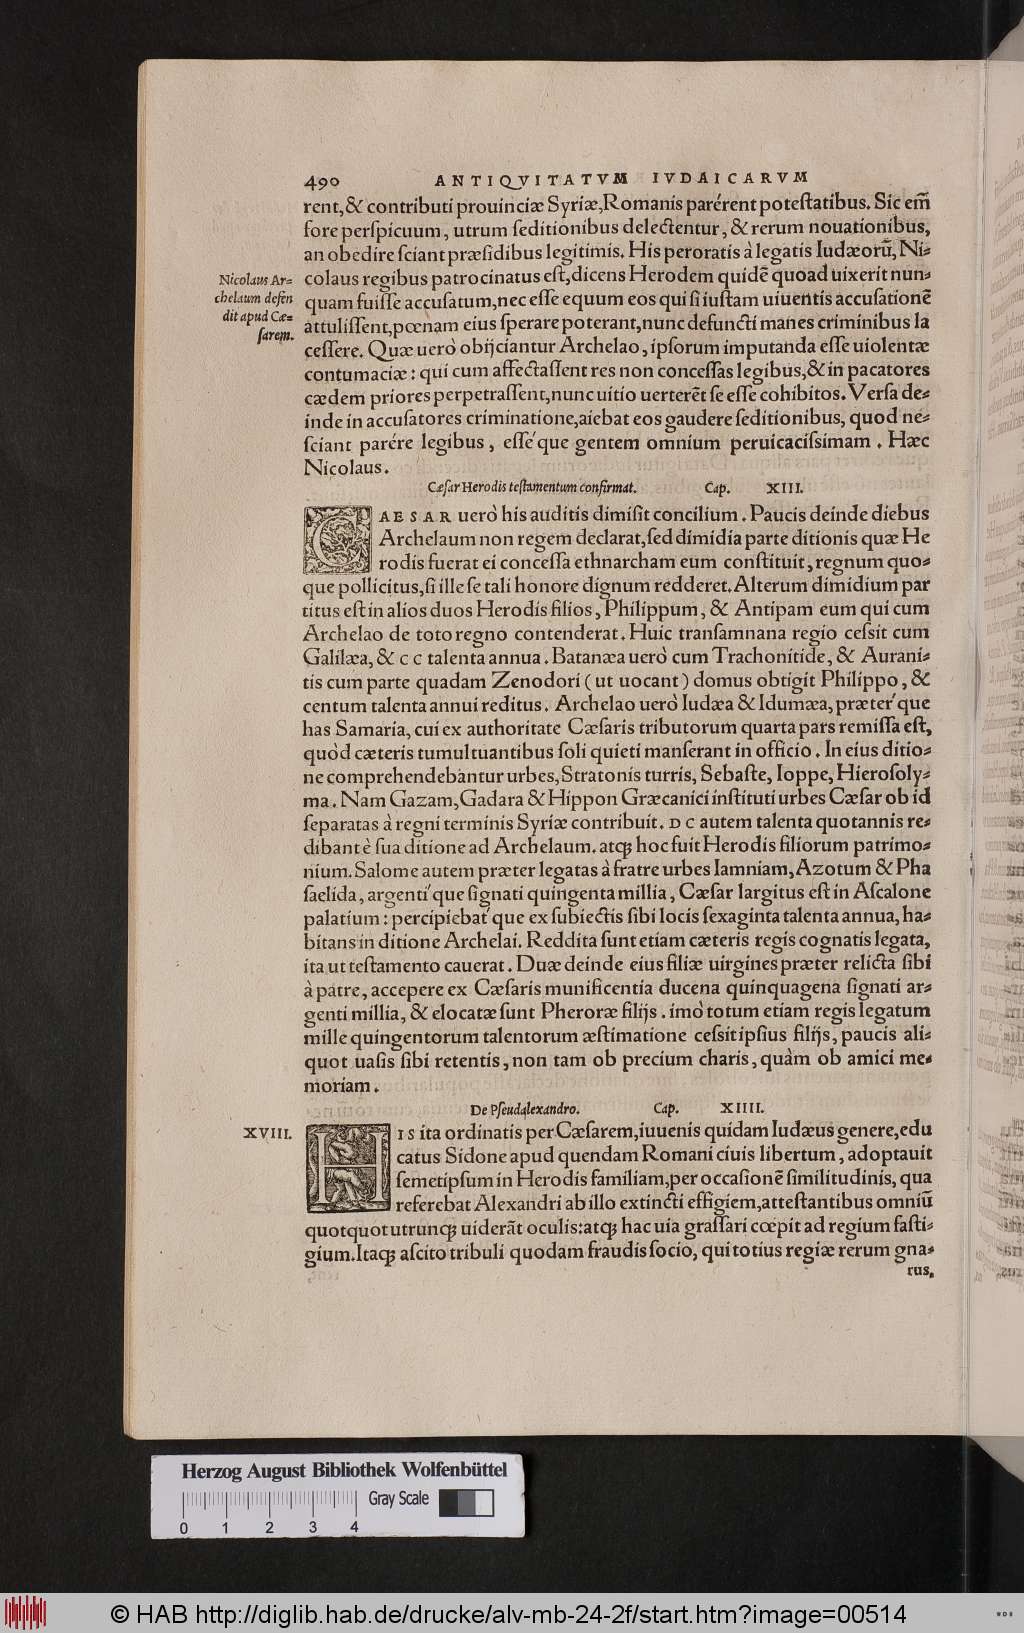 490 ANTIQVITATVM IVDAICARVM
rent,& contributi prouinciæ Syriæ,Romanis parére̕nt poteſtatibus. Sic em̃
fore perſpicuum, utrum ſeditionibus delectentur, & rerum nouationibus,
an obedire ſciant præſidibus legitimis. His peroratis à legatis Iudæorũ, Ni⸗
Nicolaus Ar⸗
chelaum defen
dit apud Cæ⸗
ſarem.
colaus regibus patrocinatus eſt,dicens Herodem quidẽ quoad uixerit nun⸗
quam fuiſſe accuſatum,nec eſſe equum eos qui ſi iuſtam uiuentis accuſationẽ
attuliſſent,pœnam eius ſperare poterant,nunc defuncti manes criminibus la
ceſſere. Quæ uerò obijciantur Archelao, ipſorum imputanda eſſe uiolentæ
contumaciæ: qui cum affectaſſent res non conceſſas legibus,& in pacatores
cædem priores perpetraſſent,nunc uitio uerterẽt ſe eſſe cohibitos. Verſa de⸗
inde in accuſatores criminatione,aiebat eos gaudere ſeditionibus, quod ne⸗
ſciant parére legibus, eſſé que gentem omnium peruicaciſsimam. Hæc
Nicolaus.
Cæſar Herodis teſtamentum confirmat. Cap. XIII.
CAESAR uerò his auditis dimiſit concilium. Paucis deinde diebus
Archelaum non regem declarat,ſed dimidia parte ditionis quæ He
rodis fuerat ei conceſſa ethnarcham eum conſtituit, regnum quo⸗
que pollicitus,ſi ille ſe tali honore dignum redderet. Alterum dimidium par
titus eſt in alios duos Herodis filios, Philippum, & Antipam eum qui cum
Archelao de toto regno contenderat. Huic tranſamnana regio ceſsit cum
Galilæa, & CC talenta annua. Batanæa uerò cum Trachonitide, & Aurani⸗
tis cum parte quadam Zenodori (ut uocant) domus obtigit Philippo, &
centum talenta annui reditus. Archelao uerò Iudæa & Idumæa, præteŕ que
has Samaria, cui ex authoritate Cæſaris tributorum quarta pars remiſſa eſt,
quòd cæteris tumultuantibus ſoli quieti manſerant in officio. In eius ditio⸗
ne comprehendebantur urbes, Stratonis turris, Sebaſte, Ioppe, Hieroſoly⸗
ma. Nam Gazam, Gadara & Hippon Græcanici inſtituti urbes Cæſar ob id
ſeparatas à regni terminis Syriæ contribuit. DC autem talenta quotannis re⸗
dibant è ſua ditione ad Archelaum. atq; hoc fuit Herodis filiorum patrimo⸗
nium. Salome autem præter legatas à fratre urbes Iamniam, Azotum & Pha
ſaelida, argentí que ſignati quingenta millia, Cæſar largitus eſt in Aſcalone
palatium: percipiebat́ que ex ſubiectis ſibi locis ſexaginta talenta annua, ha⸗
bitans in ditione Archelai. Reddita ſunt etiam cæteris regis cognatis legata,
ita ut teſtamento cauerat. Duæ deinde eius filiæ uirgines præter relicta ſibi
à patre, accepere ex Cæſaris munificentia ducena quinquagena ſignati ar⸗
genti millia, & elocatæ ſunt Pheroræ filijs. imò totum etiam regis legatum
mille quingentorum talentorum æſtimatione ceſsit ipſius filijs, paucis ali⸗
quot uaſis ſibi retentis, non tam ob precium charis, quàm ob amici me⸗
moriam.
De Pſeudalexandro. Cap. XIIII.
XVIII.
HIS ita ordinatis per Cæſarem,iuuenis quidam Iudæus genere,edu
catus Sidone apud quendam Romani ciuis libertum, adoptauit
ſemetipſum in Herodis familiam,per occaſionẽ ſimilitudinis, qua
referebat Alexandri ab illo extincti effigiem,atteſtantibus omniũ
quotquot utrunq; uiderãt oculis:atq; hac uia graſſari cœpit ad regium faſti⸗
gium.Itaq; aſcito tribuli quodam fraudis ſocio, qui totius regiæ rerum gna⸗
rus,
Herzog August Bibliothek Wolfenbüttel
Gray Scale
0 1 2 3 4
© HAB http://diglib.hab.de/drucke/alv-mb-24-2f/start.htm?image=00514